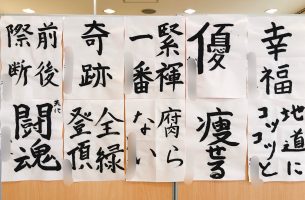 幸福
優
緊褌
一番
奇跡
前後
際断
地道に
コツコツと
痩せる
腐ら
ない
全緑
登頂
闘魂